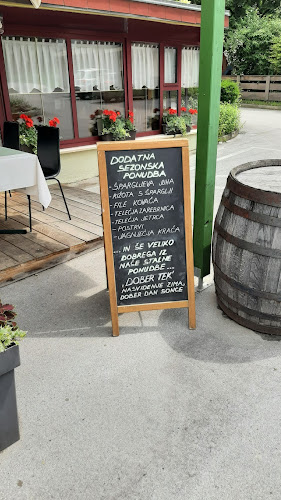 DODATNA
SEZONSKA
PONUDBA
- ŠPARGLJEVA JUHA
- RIŽOTA S ŠPARGLJI
- FILE KOVAČA
- TELEČJA ZAREBRNICA
- TELEČJA JETRCA
- POSTRVI
- JAGNJEČJA KRAČA
... IN ŠE VELIKO
DOBREGA IZ
NAŠE STALNE
PONUDBE ...
"DOBER TEK"
NASVIDENJE ZIMA,
DOBER DAN SONCE